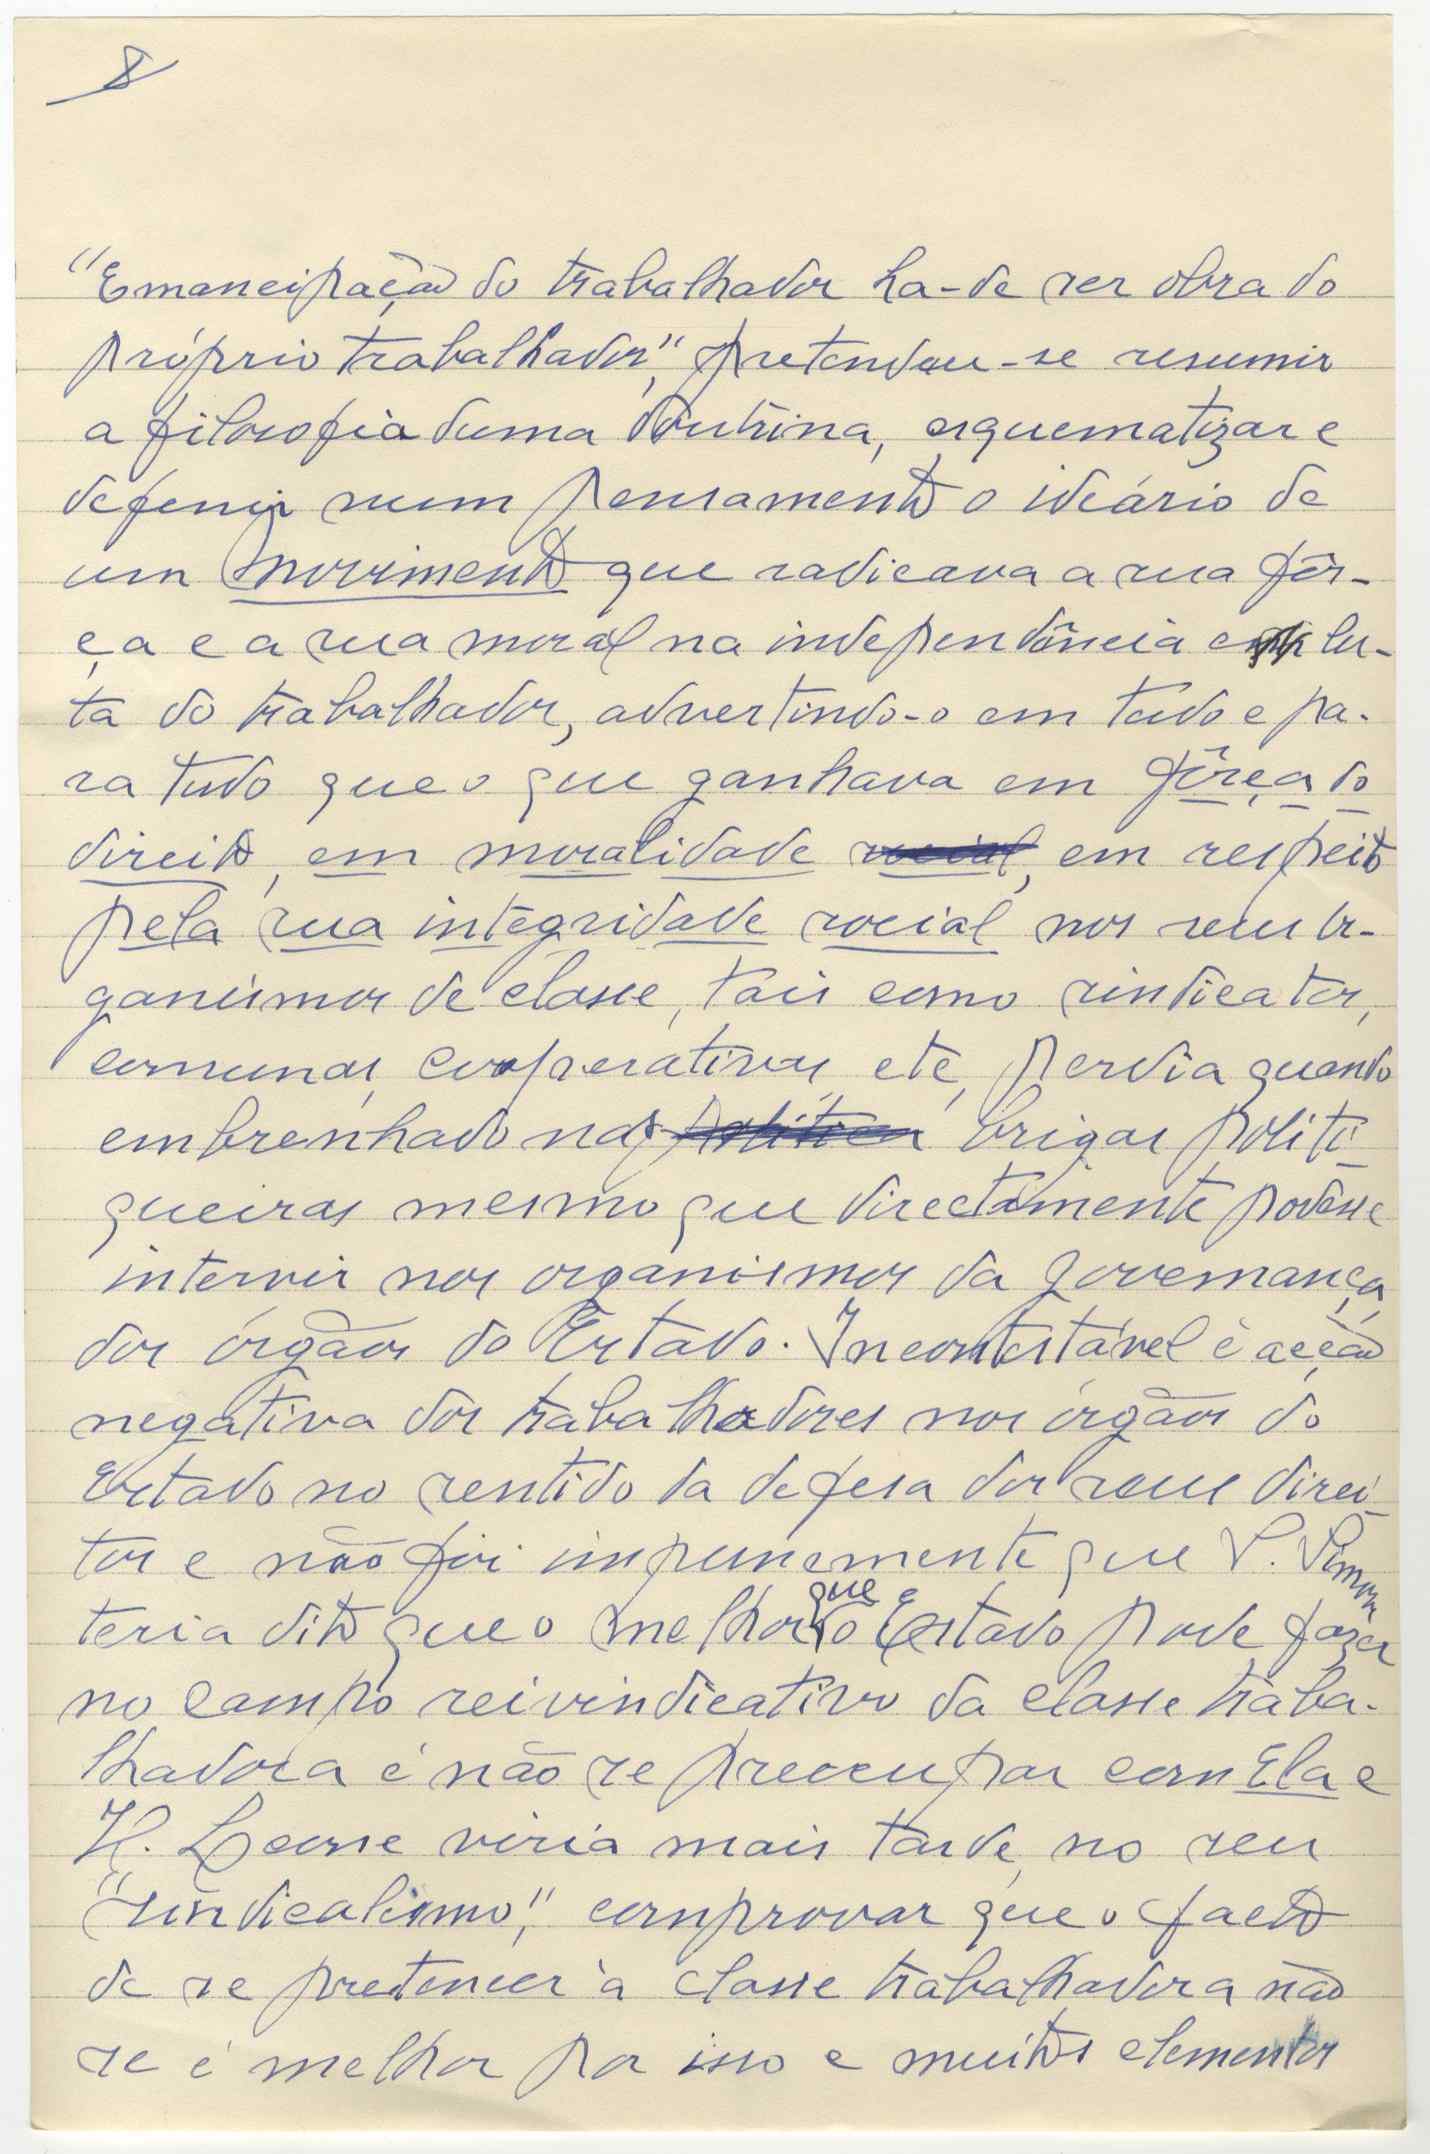 8
"Emancipação do trabalhador ha-de ser obra do
próprio trabalhador", pretendeu-se resumir
a filosofia duma doutrina, esquematizar e
defenir num pensamento o ideário de
um movimento que radicava a sua fôr-
ça e a sua moral na independência e lu-
ta do trabalhador, advertindo-o em tudo e pa-
ra tudo que o que ganhava em fôrça do
direito, em moralidade social, em respeito
pela sua integridade social nos seus or-
ganismos de classe, tais como sindicatos,
comunas, cooperativas, etc, perdia quando
embrenhado nas política brigas politi-
queiras mesmo que directamente podesse
intervir nos organismos da governança,
dos órgãos do Estado. Incontestável é acção
negativa dos trabalhadores nos órgãos do
Estado no sentido da defesa dos seus direi-
tos e não foi impunemente que S. Simon
teria dito que o melhor que o Estado pode fazer
no campo reivindicativo da classe traba-
lhadora é não se preocupar com Ela e
H. Leone viria mais tarde, no seu
"sindicalismo", comprovar que o facto
de se pretencer à classe trabalhadora não
se é melhor por isso e muitos elementos